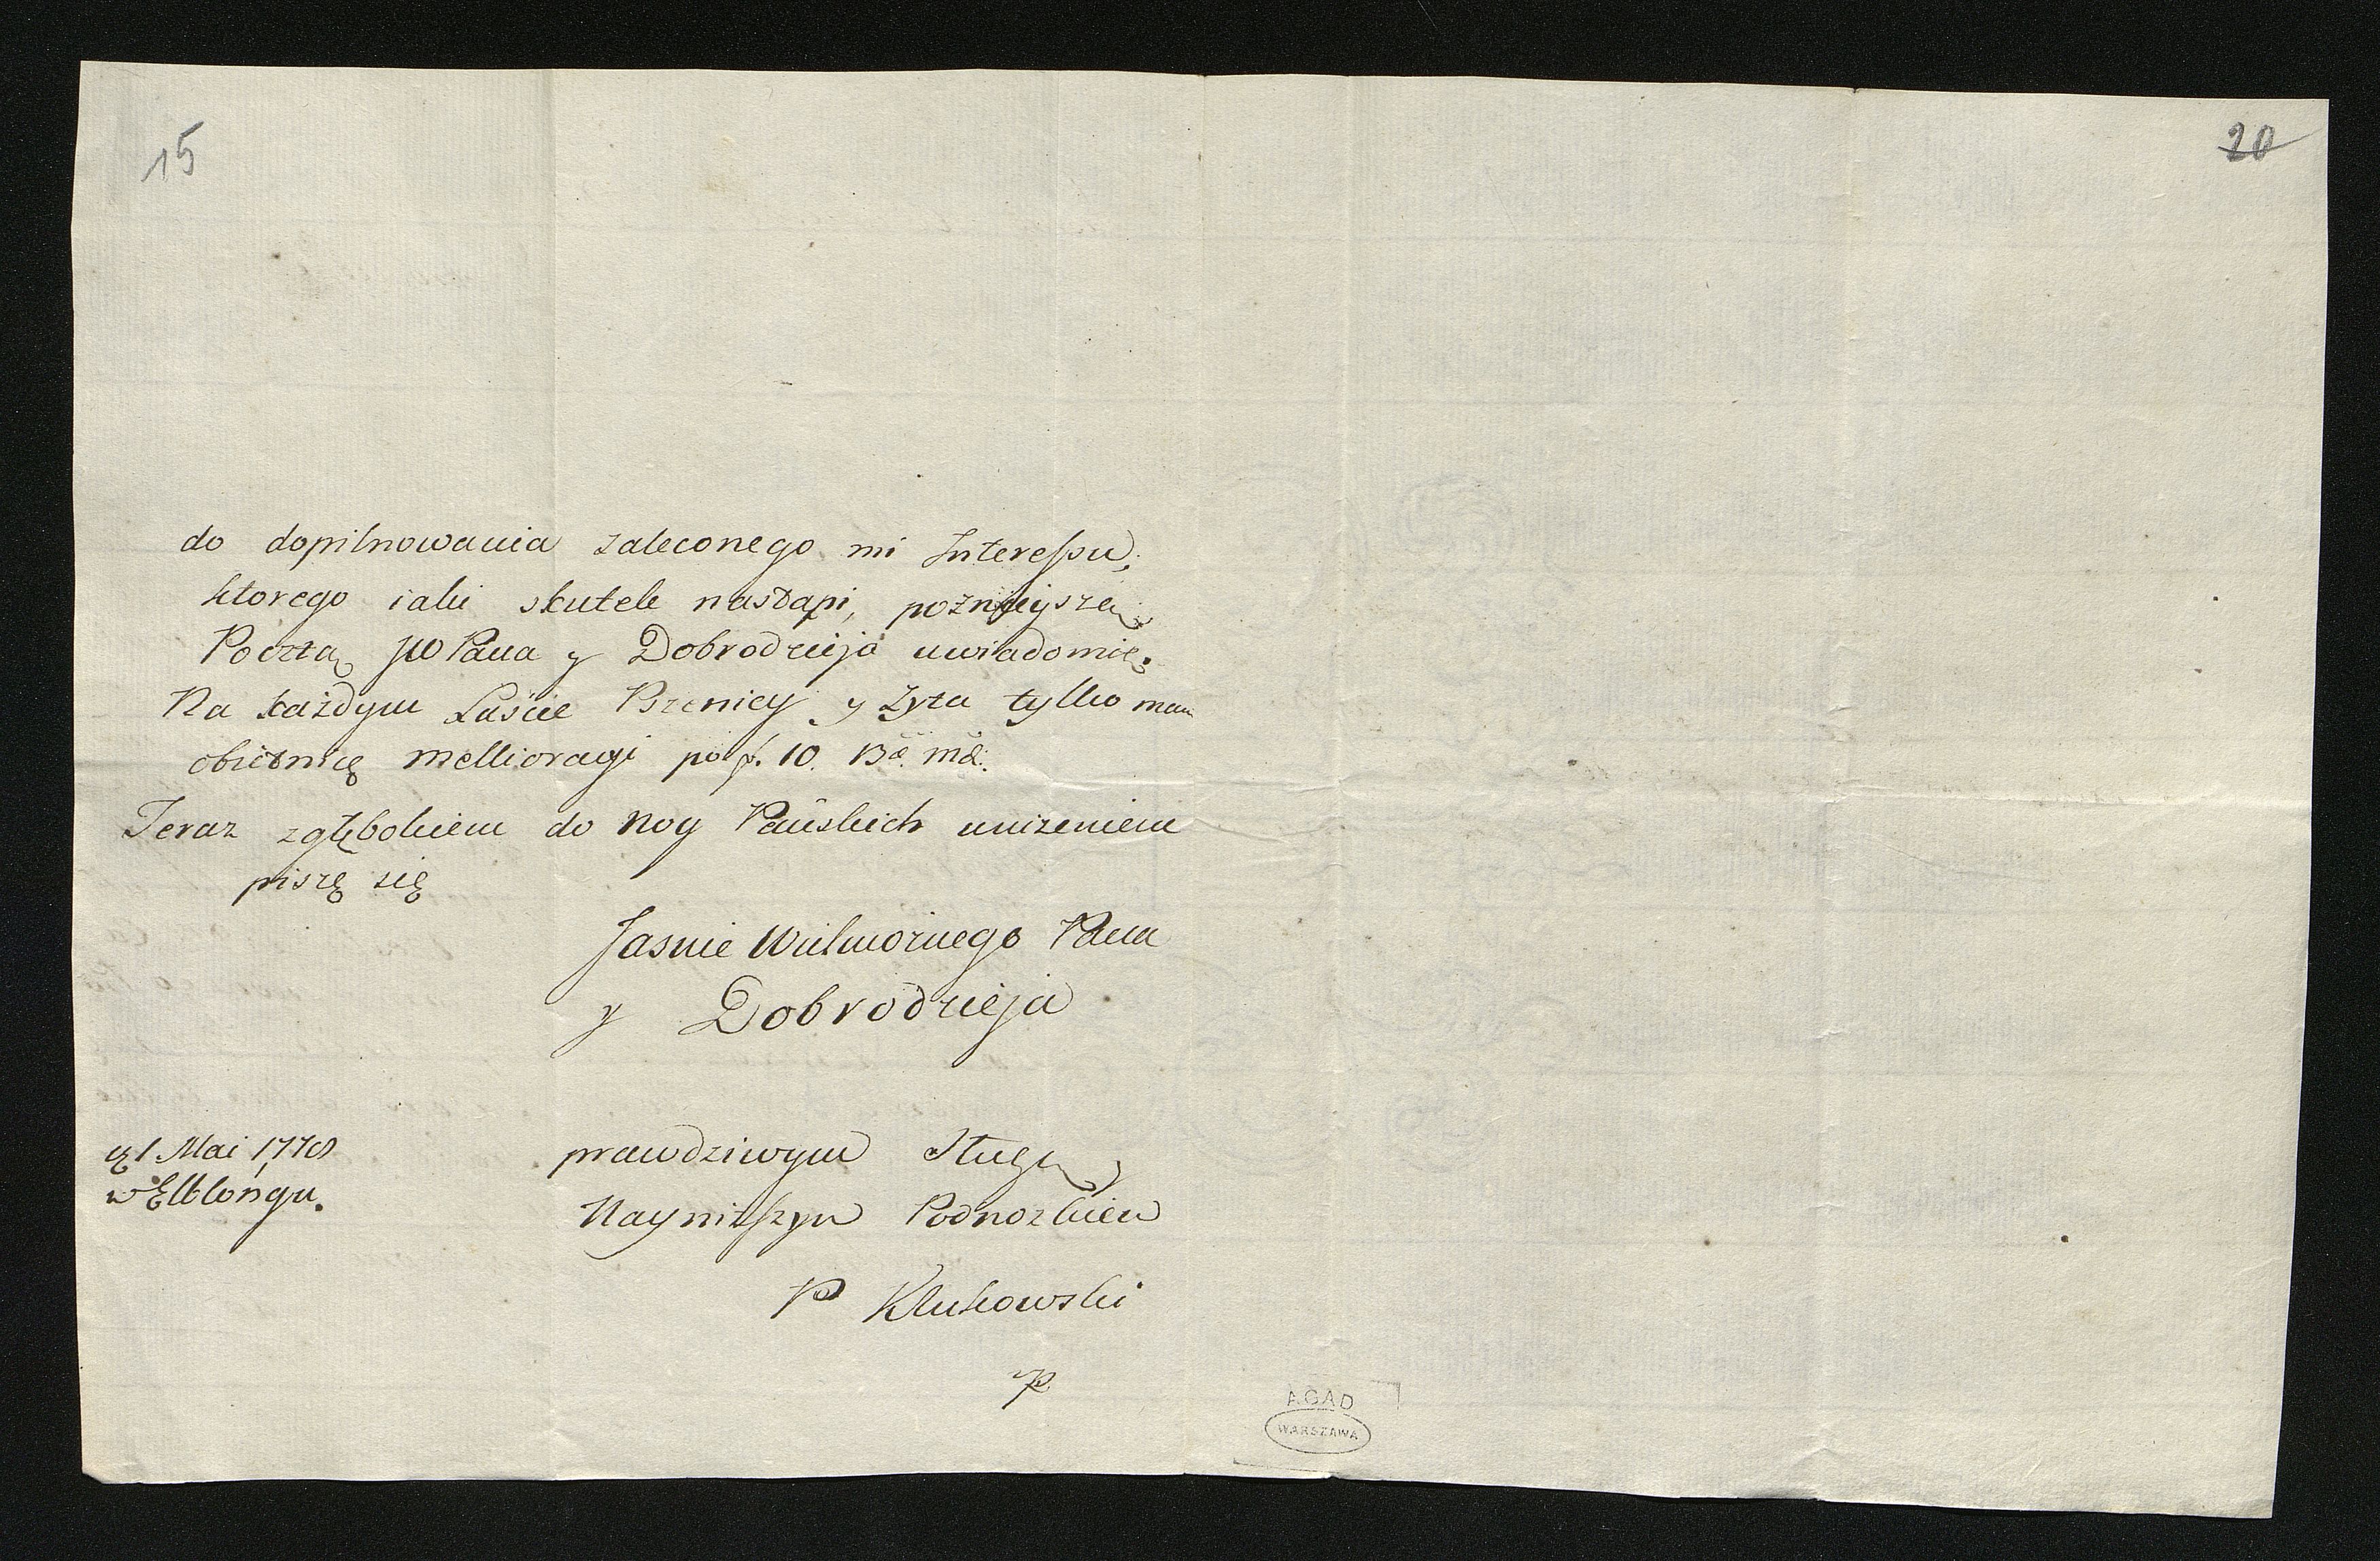 15
20
do dopilnowania zaleconego mi Interessu,
ktorego iaki skutek nastąpi, pozniejszą
Pocztą JW Pana y Dobrodzieja uwiadomię.
Na każdym Łaście Pszenicy y Zyta tylko mam
obietnicę mellioracyi po f. 10.
Teraz zgłębokiem do Nog Pańskich unizeniem
piszę się
Jasnie Wielmoznego Pana
y Dobrodzieja
prawdziwym Sługą
Nayniższym Podnozkiem
P Klukowski
Mai 1778
w Elblongu.
AGAD
WARSZAWA